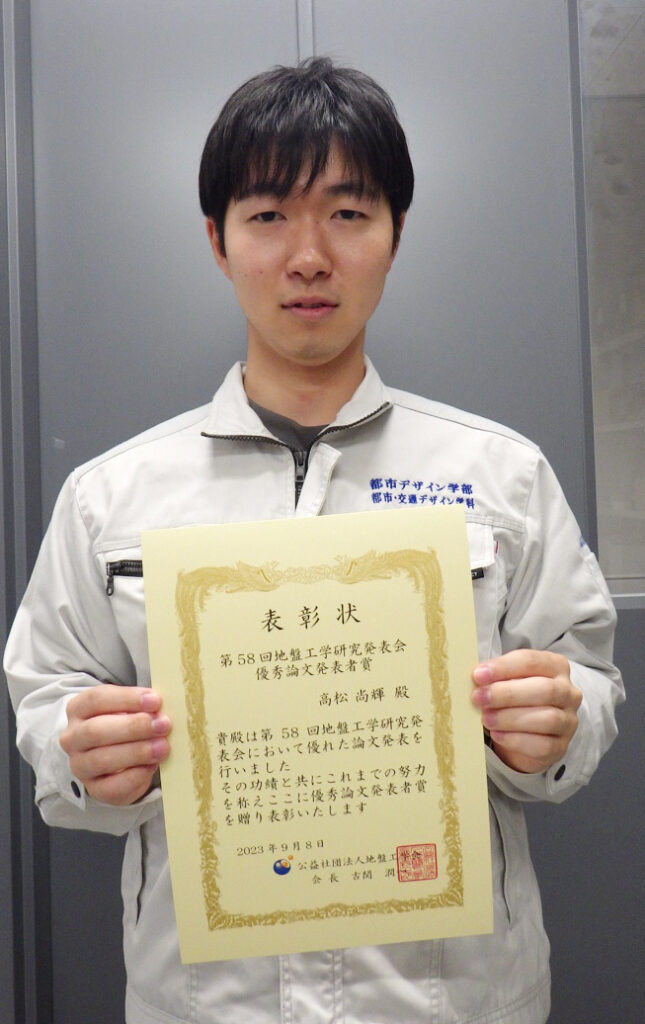 都市デザイン学部
都市・交通デザイン学科
表彰状
第58回地盤工学研究発表会
優秀論文発表者賞
高松 尚輝 殿
貴殿は第 58 回地盤工学研究発
表会において優れた論文発表を
行いました
その功績と共にこれまでの努力
を称えここに優秀論文発表者賞
を贈り表彰いたします
2023年9月8日
公益社団法人地盤工学会
会 長 古関 潤一